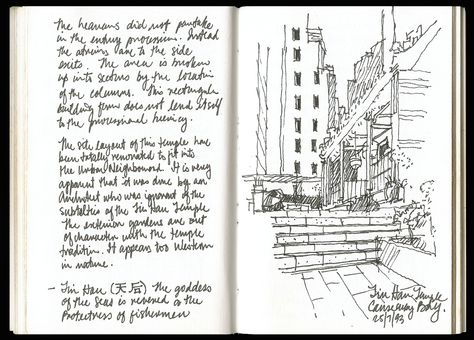 The heavens did not partake
in the entry procession. Instead
the atrium lane to the side
exits. The area is broken
up into sectors by the location
of the columns. This rectangular
building form does not lend itself
to the processional
The site layout of this temple had
been totally renovated to fit into
the Urban Neighborhood. It is very
apparent that it was done by an
Architect who was ignorant of the
subtleties of the Tin Hau Temple
The exterior gardens are out
of character with the temple
tradition. It appears too Western
in nature.
- Tin Hau (天后) The goddess
of the Seas is revered as the
Protectress of fishermen
Tin Hau Temple
Causeway Bay.
25/7/93